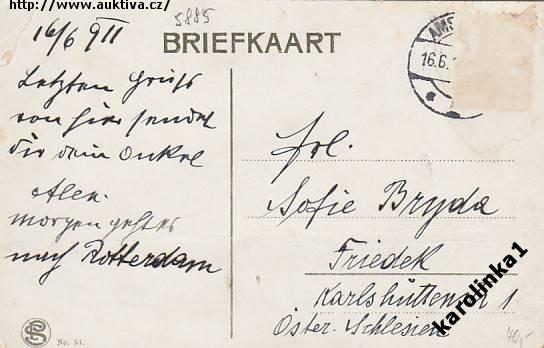 http://www.auktiva.cz/
5885
16/6 911
BRIEFKAART
AMS
16.6.
Letzten Gruß
von hier sendet
dir dein Onkel
Alex.
morgen gehts
nach Rotterdam
Frl.
Sofie Bryda
Friedek
Karlshüttenstr 1
Öster. Schlesien
karolinka1
No. 51.
40,-